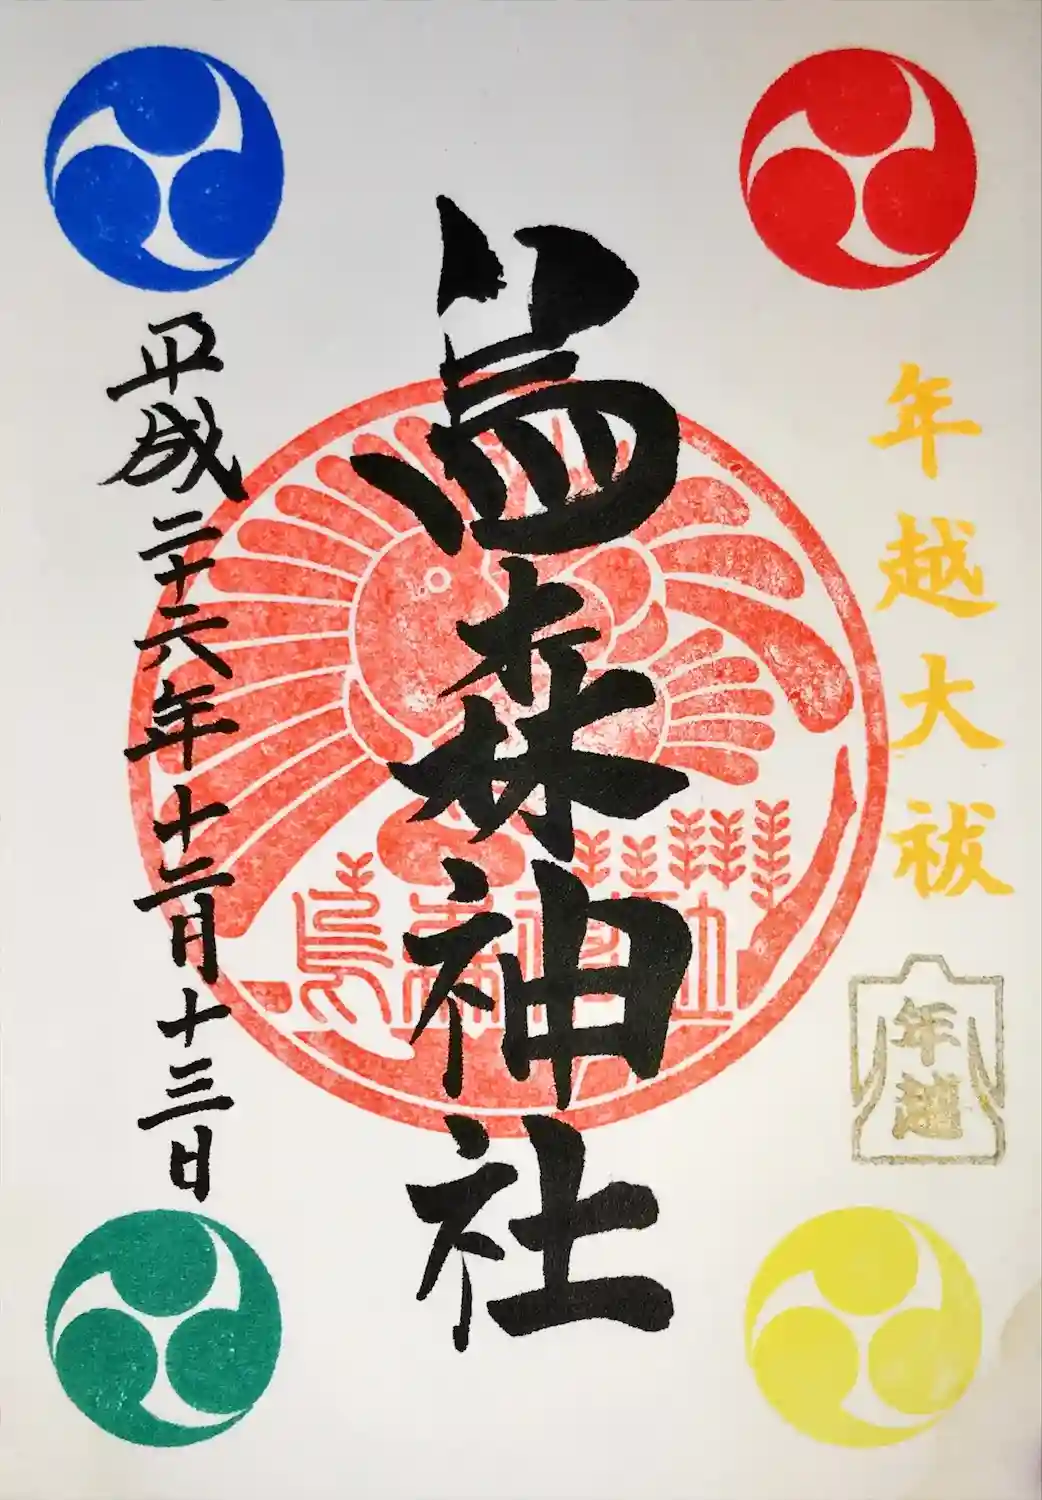 年越大祓
年越
烏森神社
烏森神社
平成二十六年十二月十三日